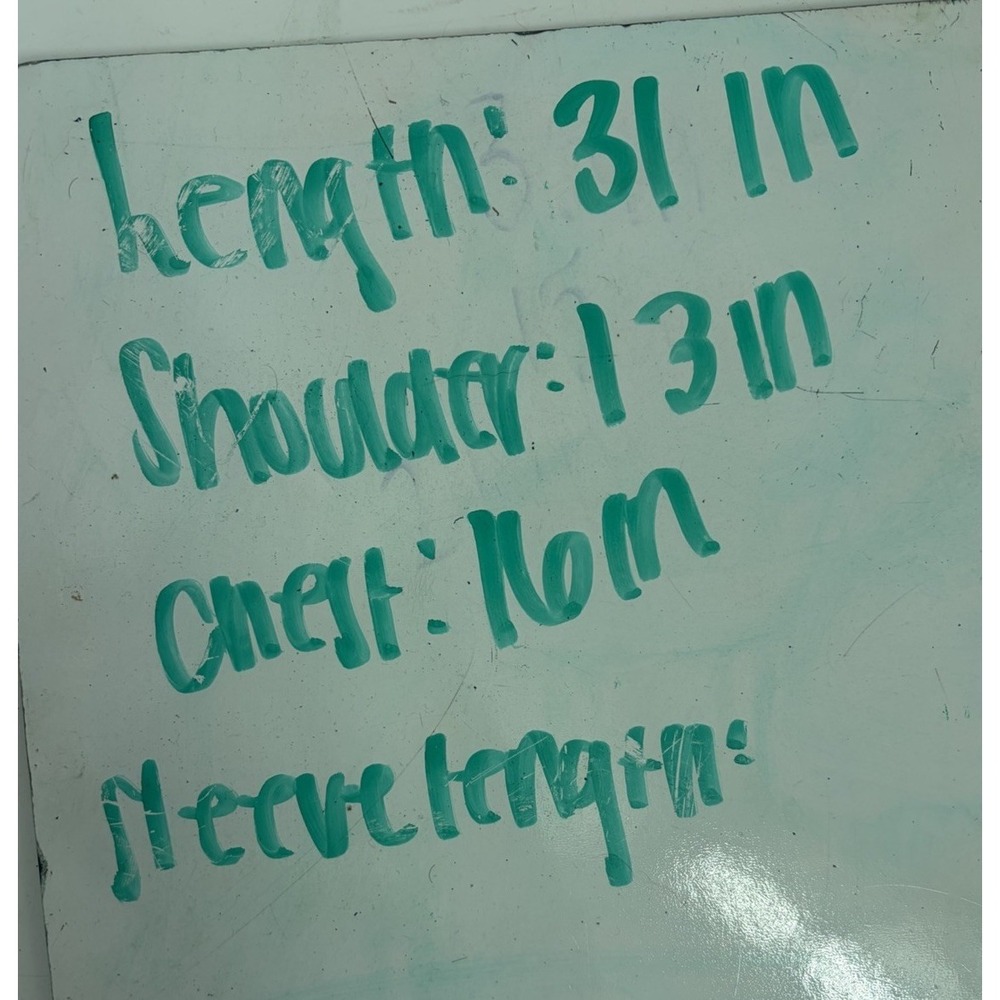 Length: 31 in
Shoulder: 13 in
Chest: 16 in
Sleeve length: